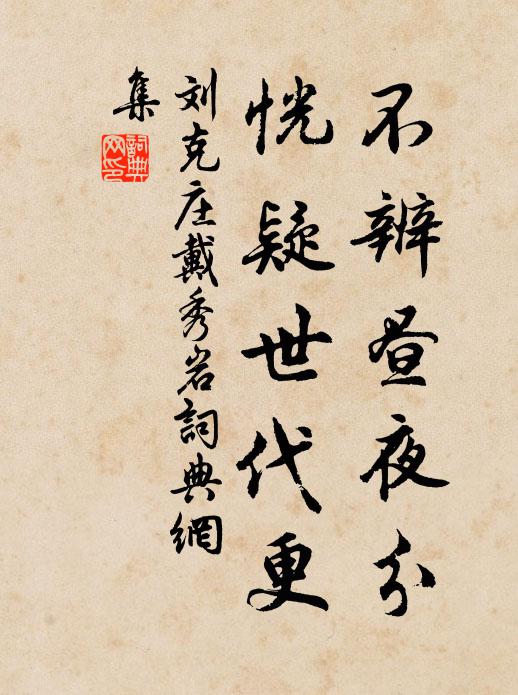 不辨昼夜分
恍疑世代更
刘克庄戴秀岩詞典網
集
詞典
网印